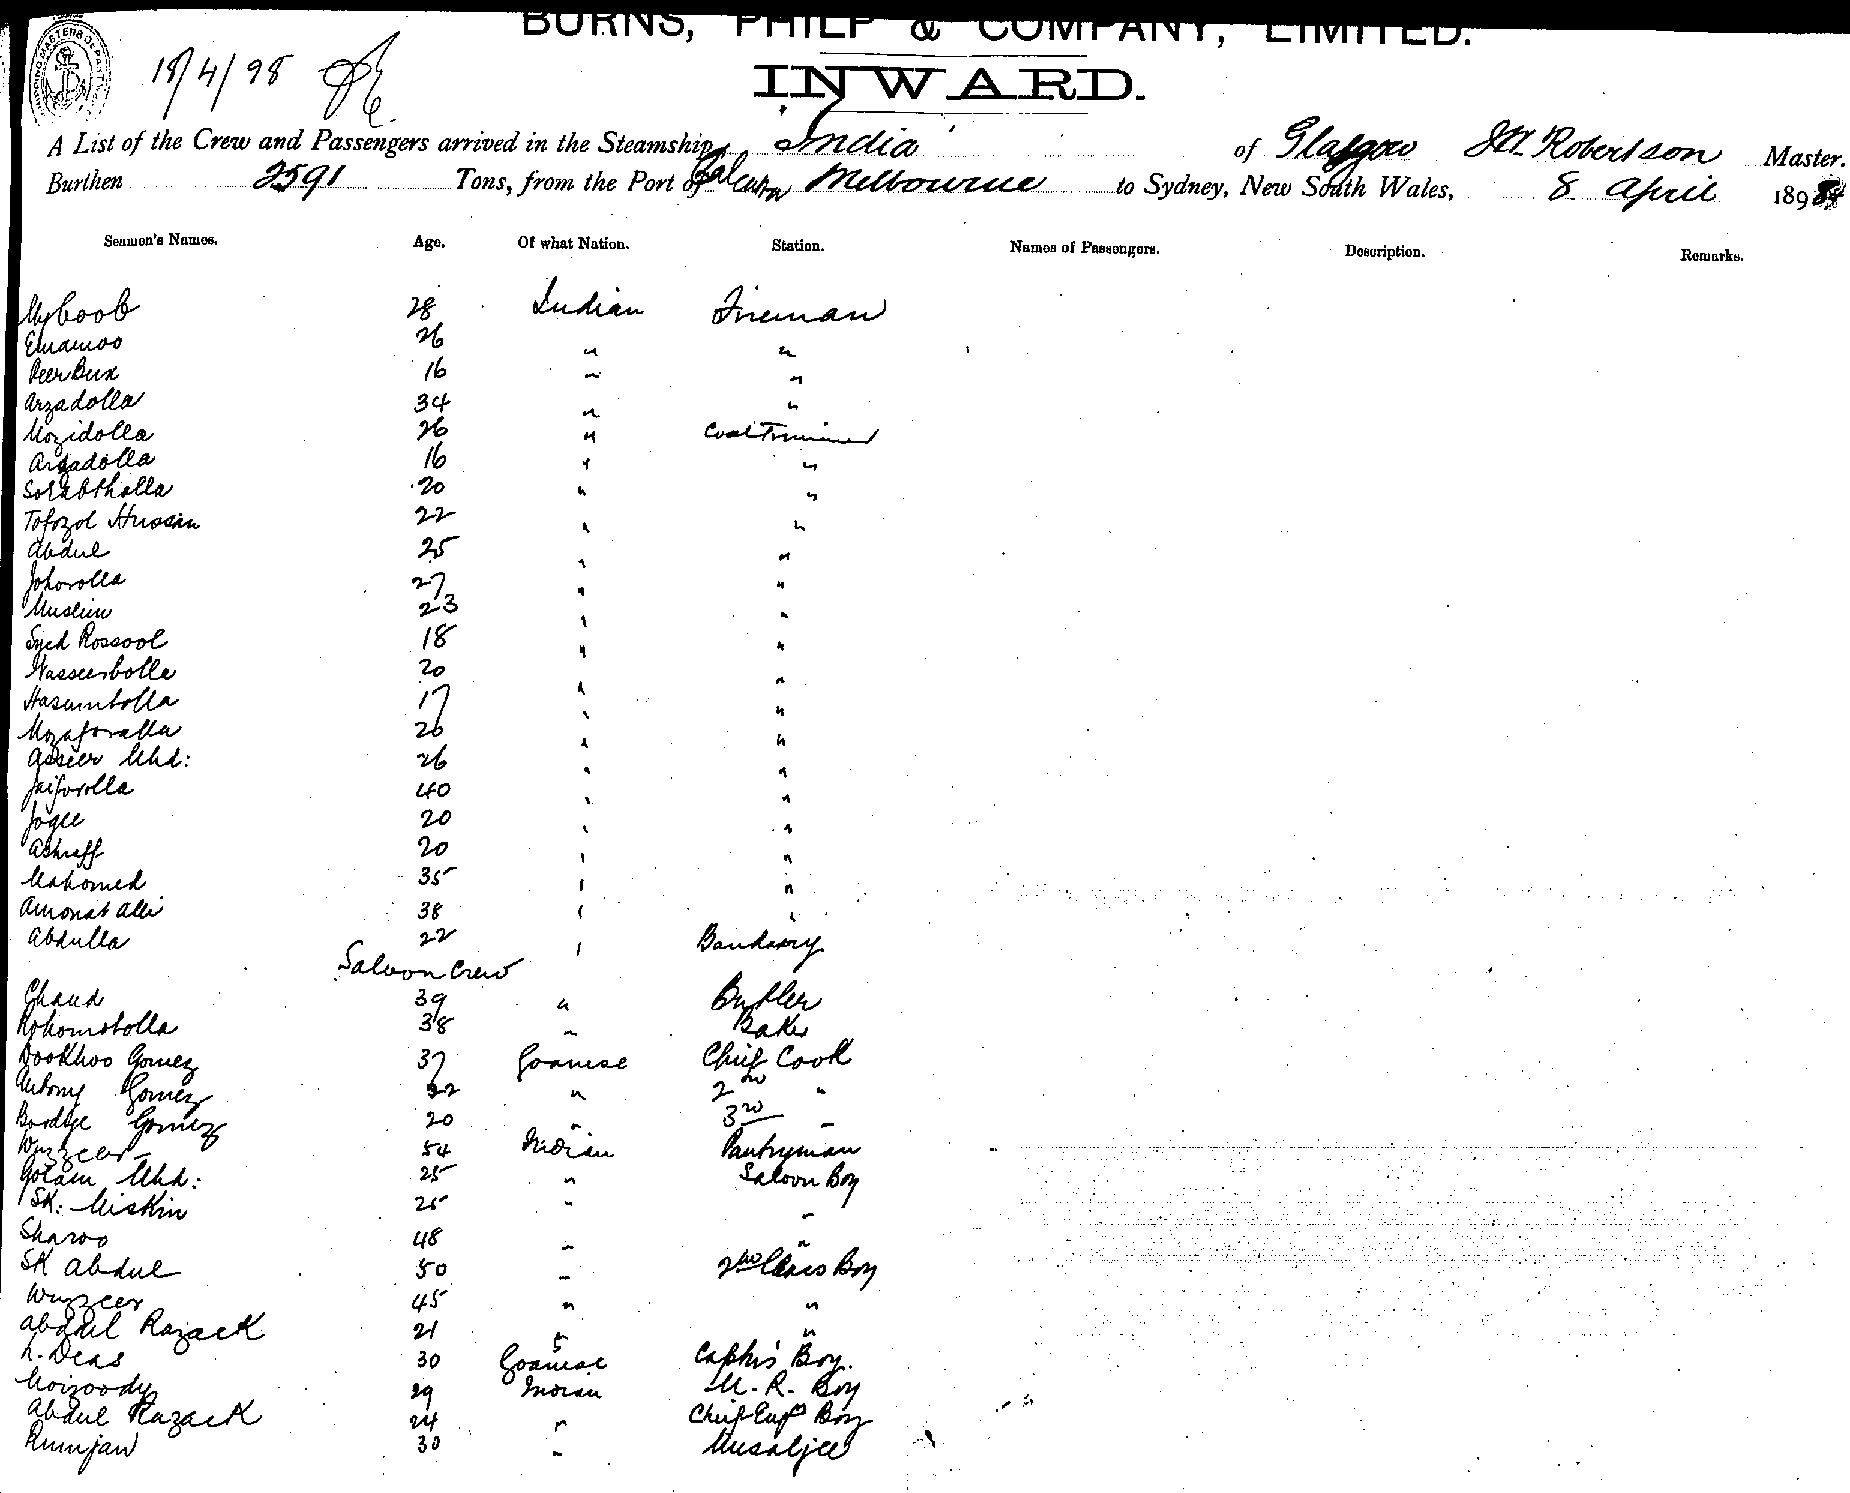 BURNS, PHILP & COMPANY, LIMITED.
18/4/98
INWARD.
A List of the Crew and Passengers arrived in the Steamship India of Glasgow Robertson Master.
Burthen 2591 Tons, from the Port of Calcutta Melbourne to Sydney, New South Wales, 8 April 1898
Seamen's Names. Age. Of what Nation. Station. Names of Passengers. Description. Remarks.
Myboob 28 Indian Fireman
Emamoo 26 " "
Peer Bux 16 " "
Arzadolla 34 " "
Mozidolla 26 " Coal Trimmer
Arzadolla 16 " "
Sorabtholla 20 " "
Tofozol Hussain 22 " "
Abdul 25 " "
Johorolla 27 " "
Muslim 23 " "
Syed Rossool 18 " "
Nasseerbolla 20 " "
Hasamtolla 17 " "
Mozaforalla 26 " "
Asseer Mhd: 26 " "
Jaiforolla 40 " "
Jogee 20 " "
Ashraff 20 " "
Mahomed 35 " "
Amonat Alli 38 " "
Abdulla 22 " Bandarry
Saloon Crew
Chand 39 " Butler
Rohomotolla 38 " Baker
Dookhoo Gomez 37 Goanese Chief Cook
Antony Gomez 22 " 2nd "
Gomez 20 " 3rd "
Wuzzeer 54 Indian Pantryman
Golam Mhd: 25 " Saloon Boy
SK: Miskin 25 " "
Sharoo 48 " "
SK Abdul 50 " 2nd Class Boy
Wuzzeer 45 " "
Abdul Razack 21 " "
L. Deas 30 Goanese Captns Boy.
Moizoody 29 Indian M. R. Boy
Abdul Razack 24 " Chief Engr Boy
Rumjan 30 " Musaljee